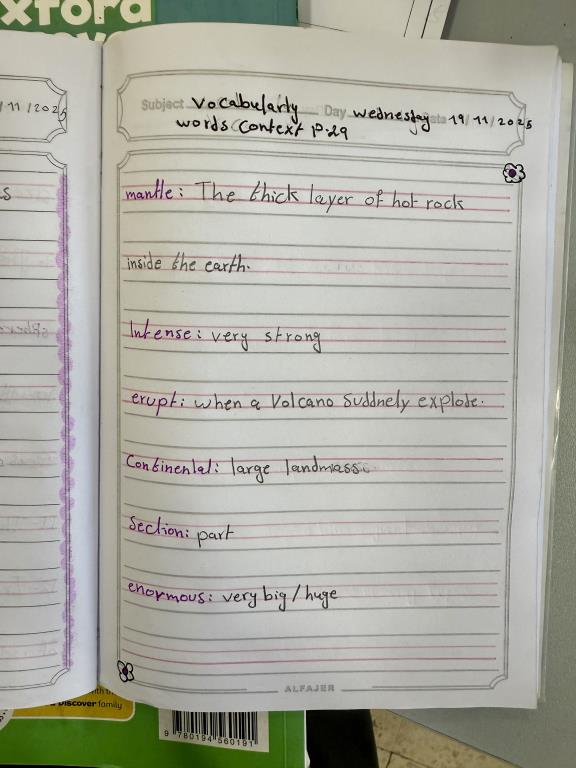 xford
Subject vocabularly Day wednesday Date 19/11/2025
words context P.29
/11/2025
s
mantle: The thick layer of hot rock
inside the earth.
Intense: very strong
erupt: when a Volcano Suddnely explode.
Continental: large landmass.
Section: part
enormous: very big / huge
ALFAJER
with th
Discover family
9 780194 560191